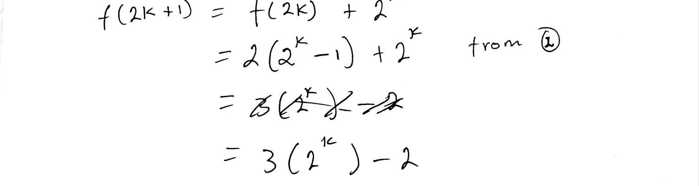 f(2k+1) = f(2k) + 2
= 2(2^k - 1) + 2^k from ②
= 3(2^k) - 2